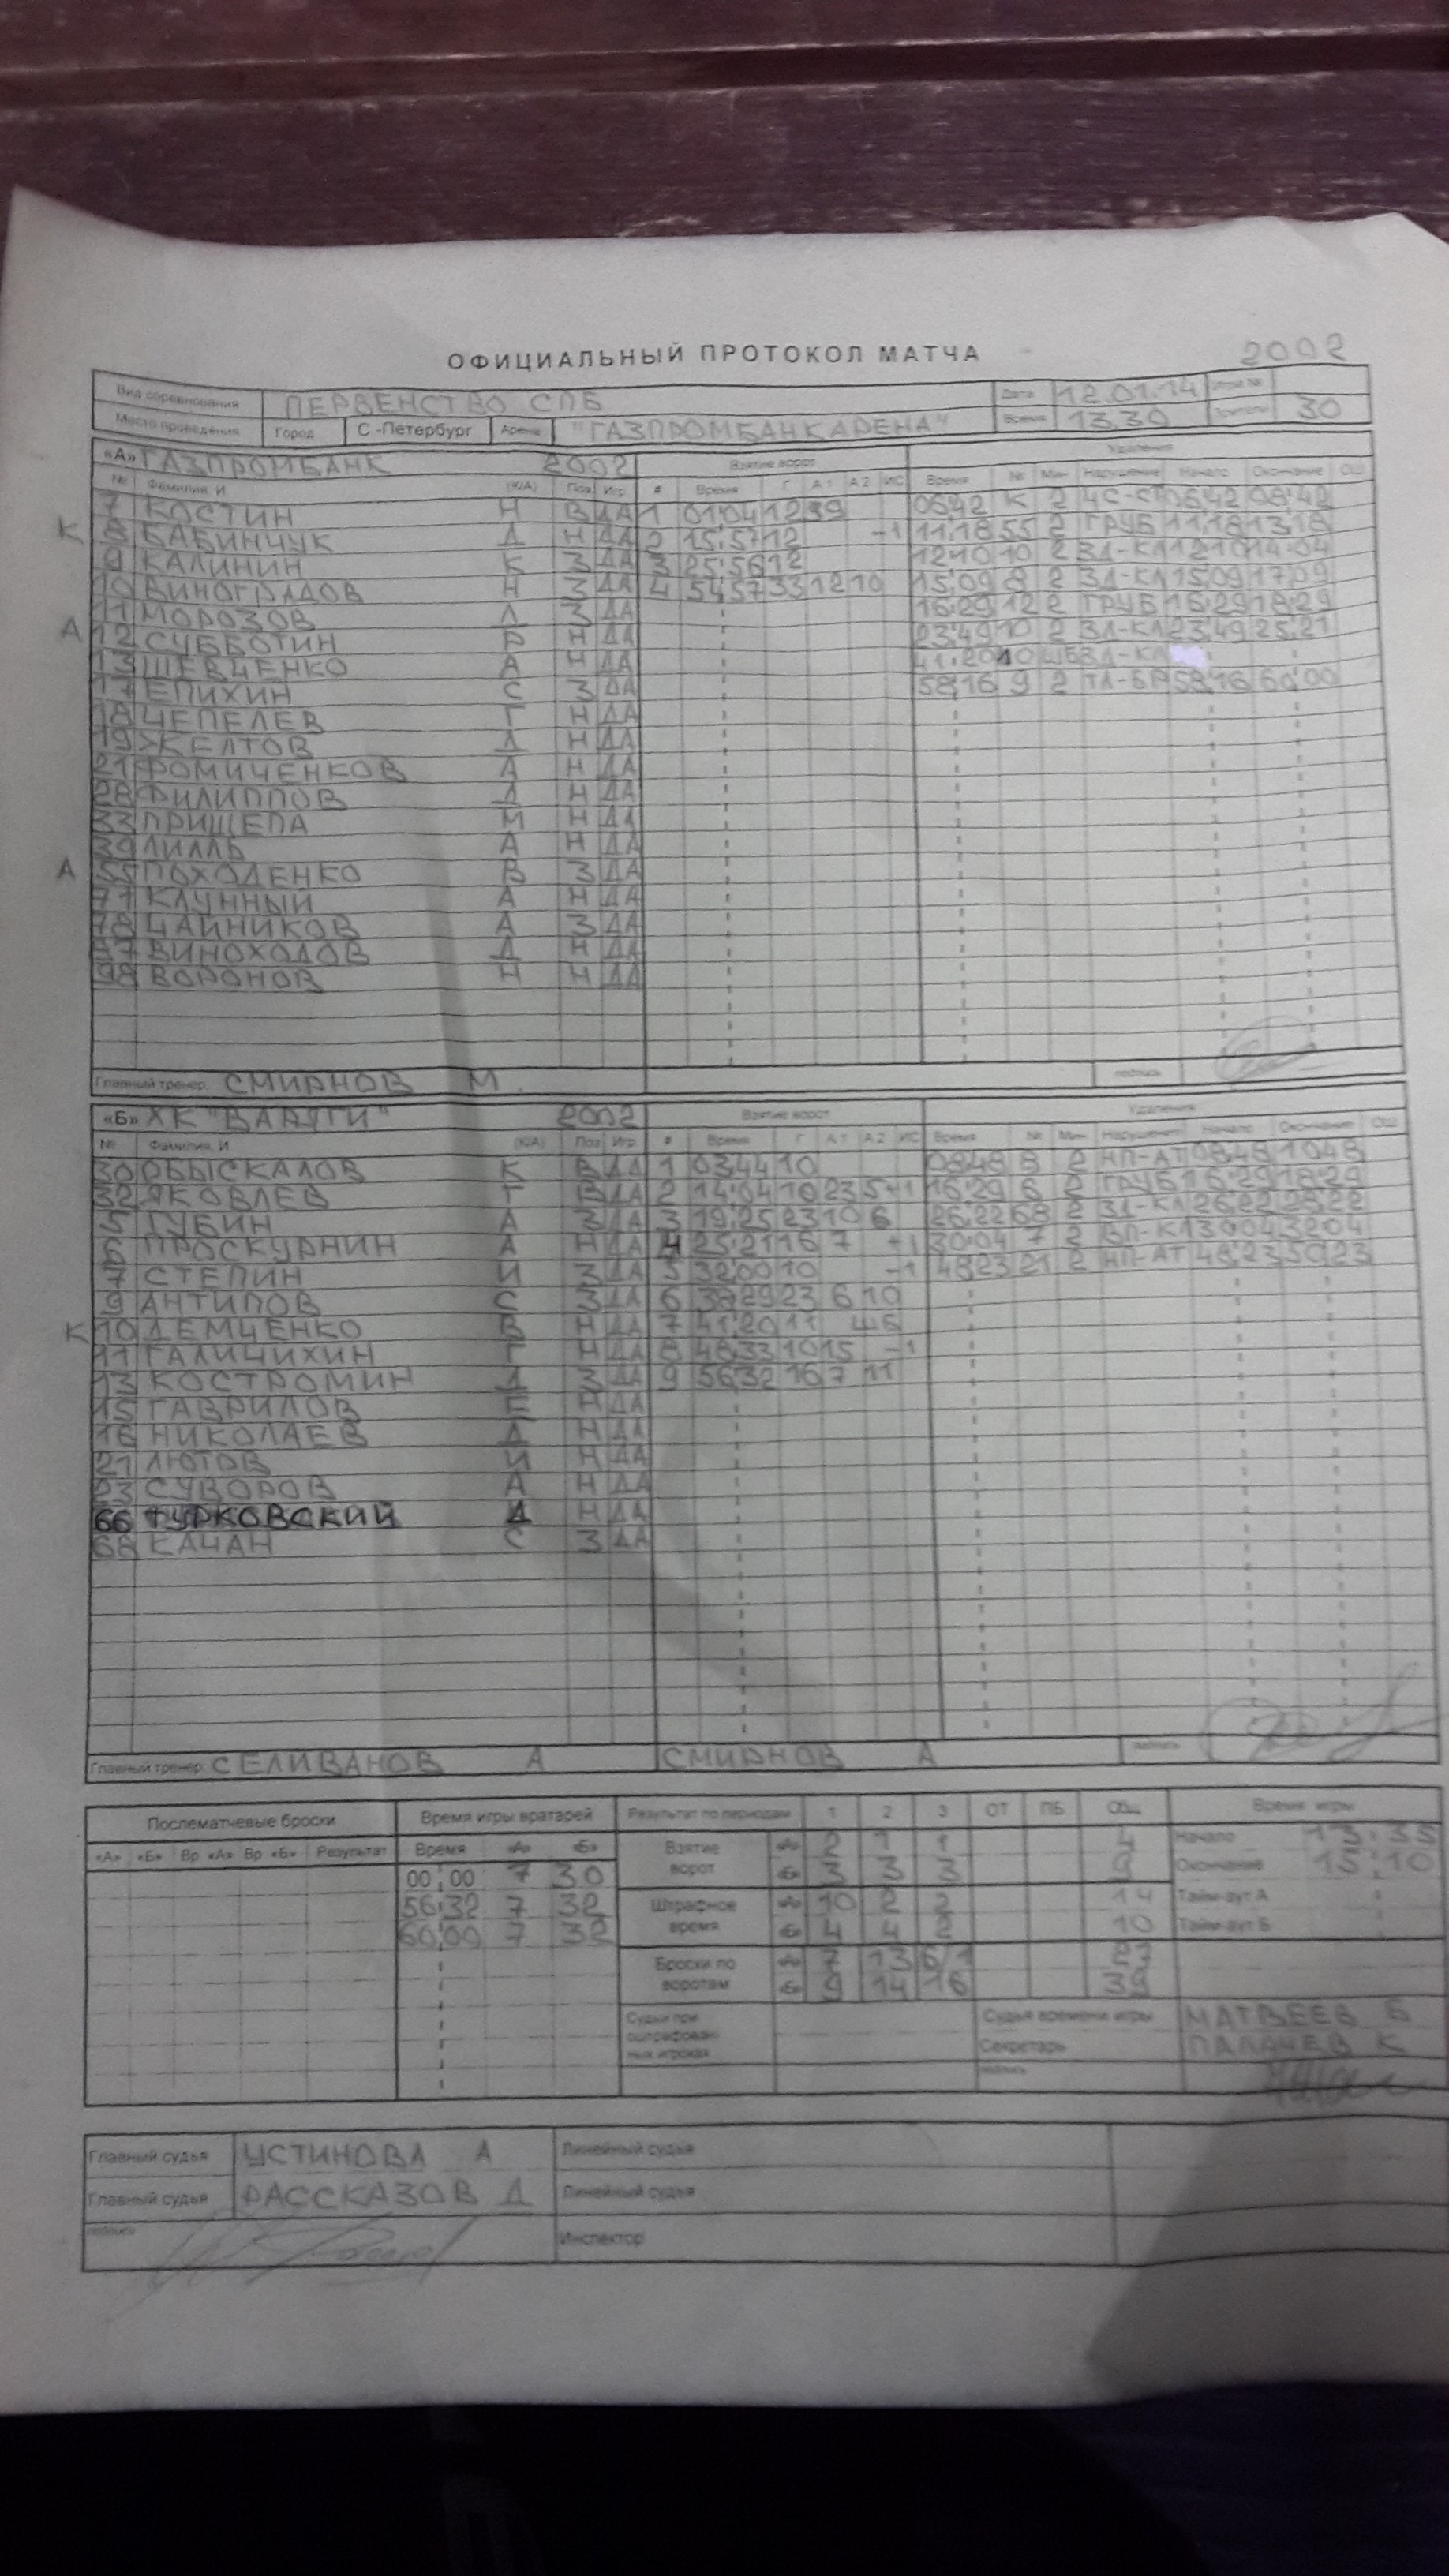 ОФИЦИАЛЬНЫЙ ПРОТОКОЛ МАТЧА 2002
Вид соревнования ПЕРВЕНСТВО СПБ Дата 12.01.14 Игра №
Место проведения Город С-Петербург Арена "ГАЗПРОМБАНК АРЕНА" Время 13.30 Зрители 30
«А» ГАЗПРОМБАНК 2002 Взятие ворот Удаления
№ Фамилия, И (К/А) Поз Игр # Время Г А1 А2 ИС Время № Мин Нарушение Начало Окончание ОШ
7 КОСТИН Н В ДА 1 01:04 12 39 06:42 К 2 ЧС-СТ 06:42 08:42
К 8 БАБИНЧУК Д Н ДА 2 15:57 12 -1 11:18 55 2 ГРУБ 11:18 13:18
9 КАЛИНИН К З ДА 3 25:56 12 12:10 10 2 ЗД-КЛ 12:10 14:04
10 ВИНОГРАДОВ Н З ДА 4 54:57 33 12 10 15:09 8 2 ЗД-КЛ 15:09 17:09
11 МОРОЗОВ Д З ДА 16:29 12 2 ГРУБ 16:29 18:29
А 12 СУББОТИН Р Н ДА 23:49 10 2 ЗД-КЛ 23:49 25:21
13 ШЕВЧЕНКО А Н ДА 41:20 10 ШБ ЗД-КЛ
17 ЕПИХИН С З ДА 58:16 9 2 ТЛ-БР 58:16 60:00
18 ЧЕПЕЛЕВ Г Н ДА
19 ЖЕЛТОВ Д Н ДА
21 ФОМИЧЕНКОВ А Н ДА
28 ФИЛИППОВ Д Н ДА
33 ПРИЩЕПА М Н ДА
39 ЛИЛЛЬ А Н ДА
А 55 ПОХОДЕНКО В З ДА
77 КЛУННЫЙ А Н ДА
78 ЧАЙНИКОВ А З ДА
ВИНОХОДОВ Д Н ДА
98 ВОРОНОВ Н Н ДА
Главный тренер: СМИРНОВ М. подпись
«Б» ХК "ВАРЯГИ" 2002 Взятие ворот Удаления
№ Фамилия, И (К/А) Поз Игр # Время Г А1 А2 ИС Время № Мин Нарушение Начало Окончание ОШ
30 ОБЫСКАЛОВ К В ДА 1 03:44 10 08:48 8 2 НП-АТ 08:48 10:48
32 ЯКОВЛЕВ Г В ДА 2 14:04 10 23 5 +1 16:29 6 2 ГРУБ 16:29 18:29
5 ГУБИН А З ДА 3 19:25 23 10 6 26:22 68 2 ЗД-КЛ 26:22 28:22
6 ПРОСКУРНИН А Н ДА 4 25:21 16 7 +1 30:04 7 2 30:04 32:04
7 СТЕПИН И З ДА 5 32:00 10 -1 48:23 21 2 НП-АТ 48:23 50:23
9 АНТИПОВ С З ДА 6 38:29 23 6 10
К 10 ДЕМЧЕНКО В Н ДА 7 41:20 11 ШБ
11 ГАЛИЧИХИН Г Н ДА 8 48:33 10 15 -1
13 КОСТРОМИН Д З ДА 9 56:32 16 7 11
15 ГАВРИЛОВ Е Н ДА
16 НИКОЛАЕВ Д Н ДА
21 ЛЮТОВ И Н ДА
23 СУВОРОВ А Н ДА
66 ТУРКОВСКИЙ Д Н ДА
68 КАЧАН С З ДА
Главный тренер: СЕЛИВАНОВ А СМИРНОВ А подпись
Послематчевые броски Время игры вратарей Результат по периодам 1 2 3 ОТ ПБ Общ Время игры
«А» «Б» Вр «А» Вр «Б» Результат Время «А» «Б» Взятие ворот «А» 2 1 1 4 Начало 13:35
00:00 7 30 «Б» 3 3 3 9 Окончание 15:10
56:32 7 32 Штрафное время «А» 10 2 2 14 Тайм-аут А
60:00 7 32 «Б» 4 4 2 10 Тайм-аут Б
Броски по воротам «А» 7 13 6/1 27
«Б» 9 14 16 39
Судьи при оштрафованных игроках Судья времени игры МАТВЕЕВ Б
Секретарь ПАЛАЧЕВ К
подпись
Главный судья УСТИНОВА А Линейный судья
Главный судья РАССКАЗОВ Д Линейный судья
подпись Инспектор